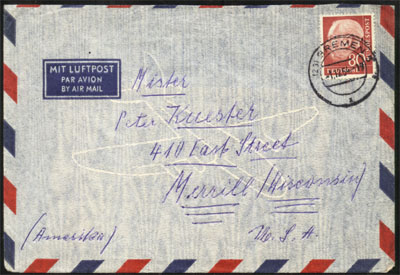 MIT LUFTPOST
PAR AVION
BY AIR MAIL
BREMEN
80
BUNDESPOST
Mister
Peter Kuester
410 East Street
Merrill (Wisconsin)
(Amerika)
U.S.A.